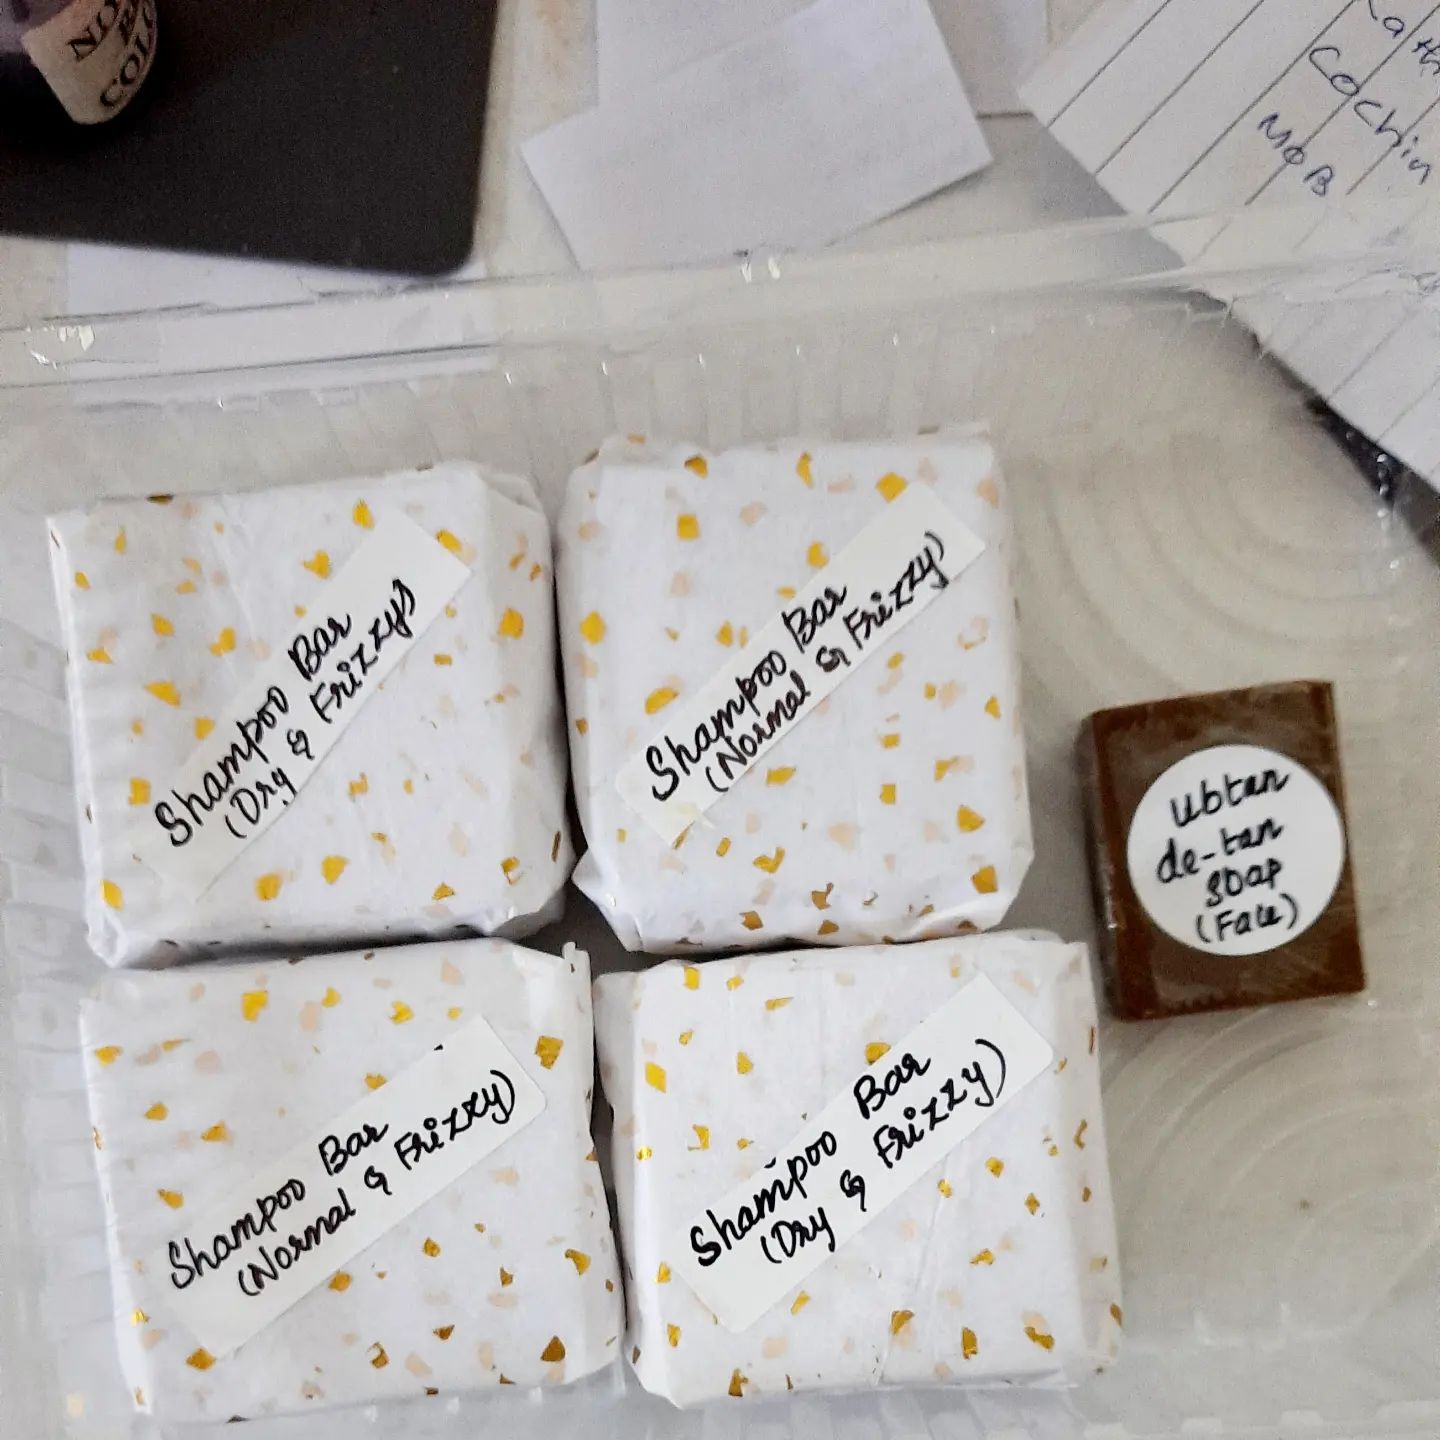 COL
Cochin
MOB
Shampoo Bar
(Dry & Frizzy)
Shampoo Bar
(Normal & Frizzy)
ubtan
de-tan
soap
(Face)
Shampoo Bar
(Normal & Frizzy)
Shampoo Bar
(Dry & Frizzy)